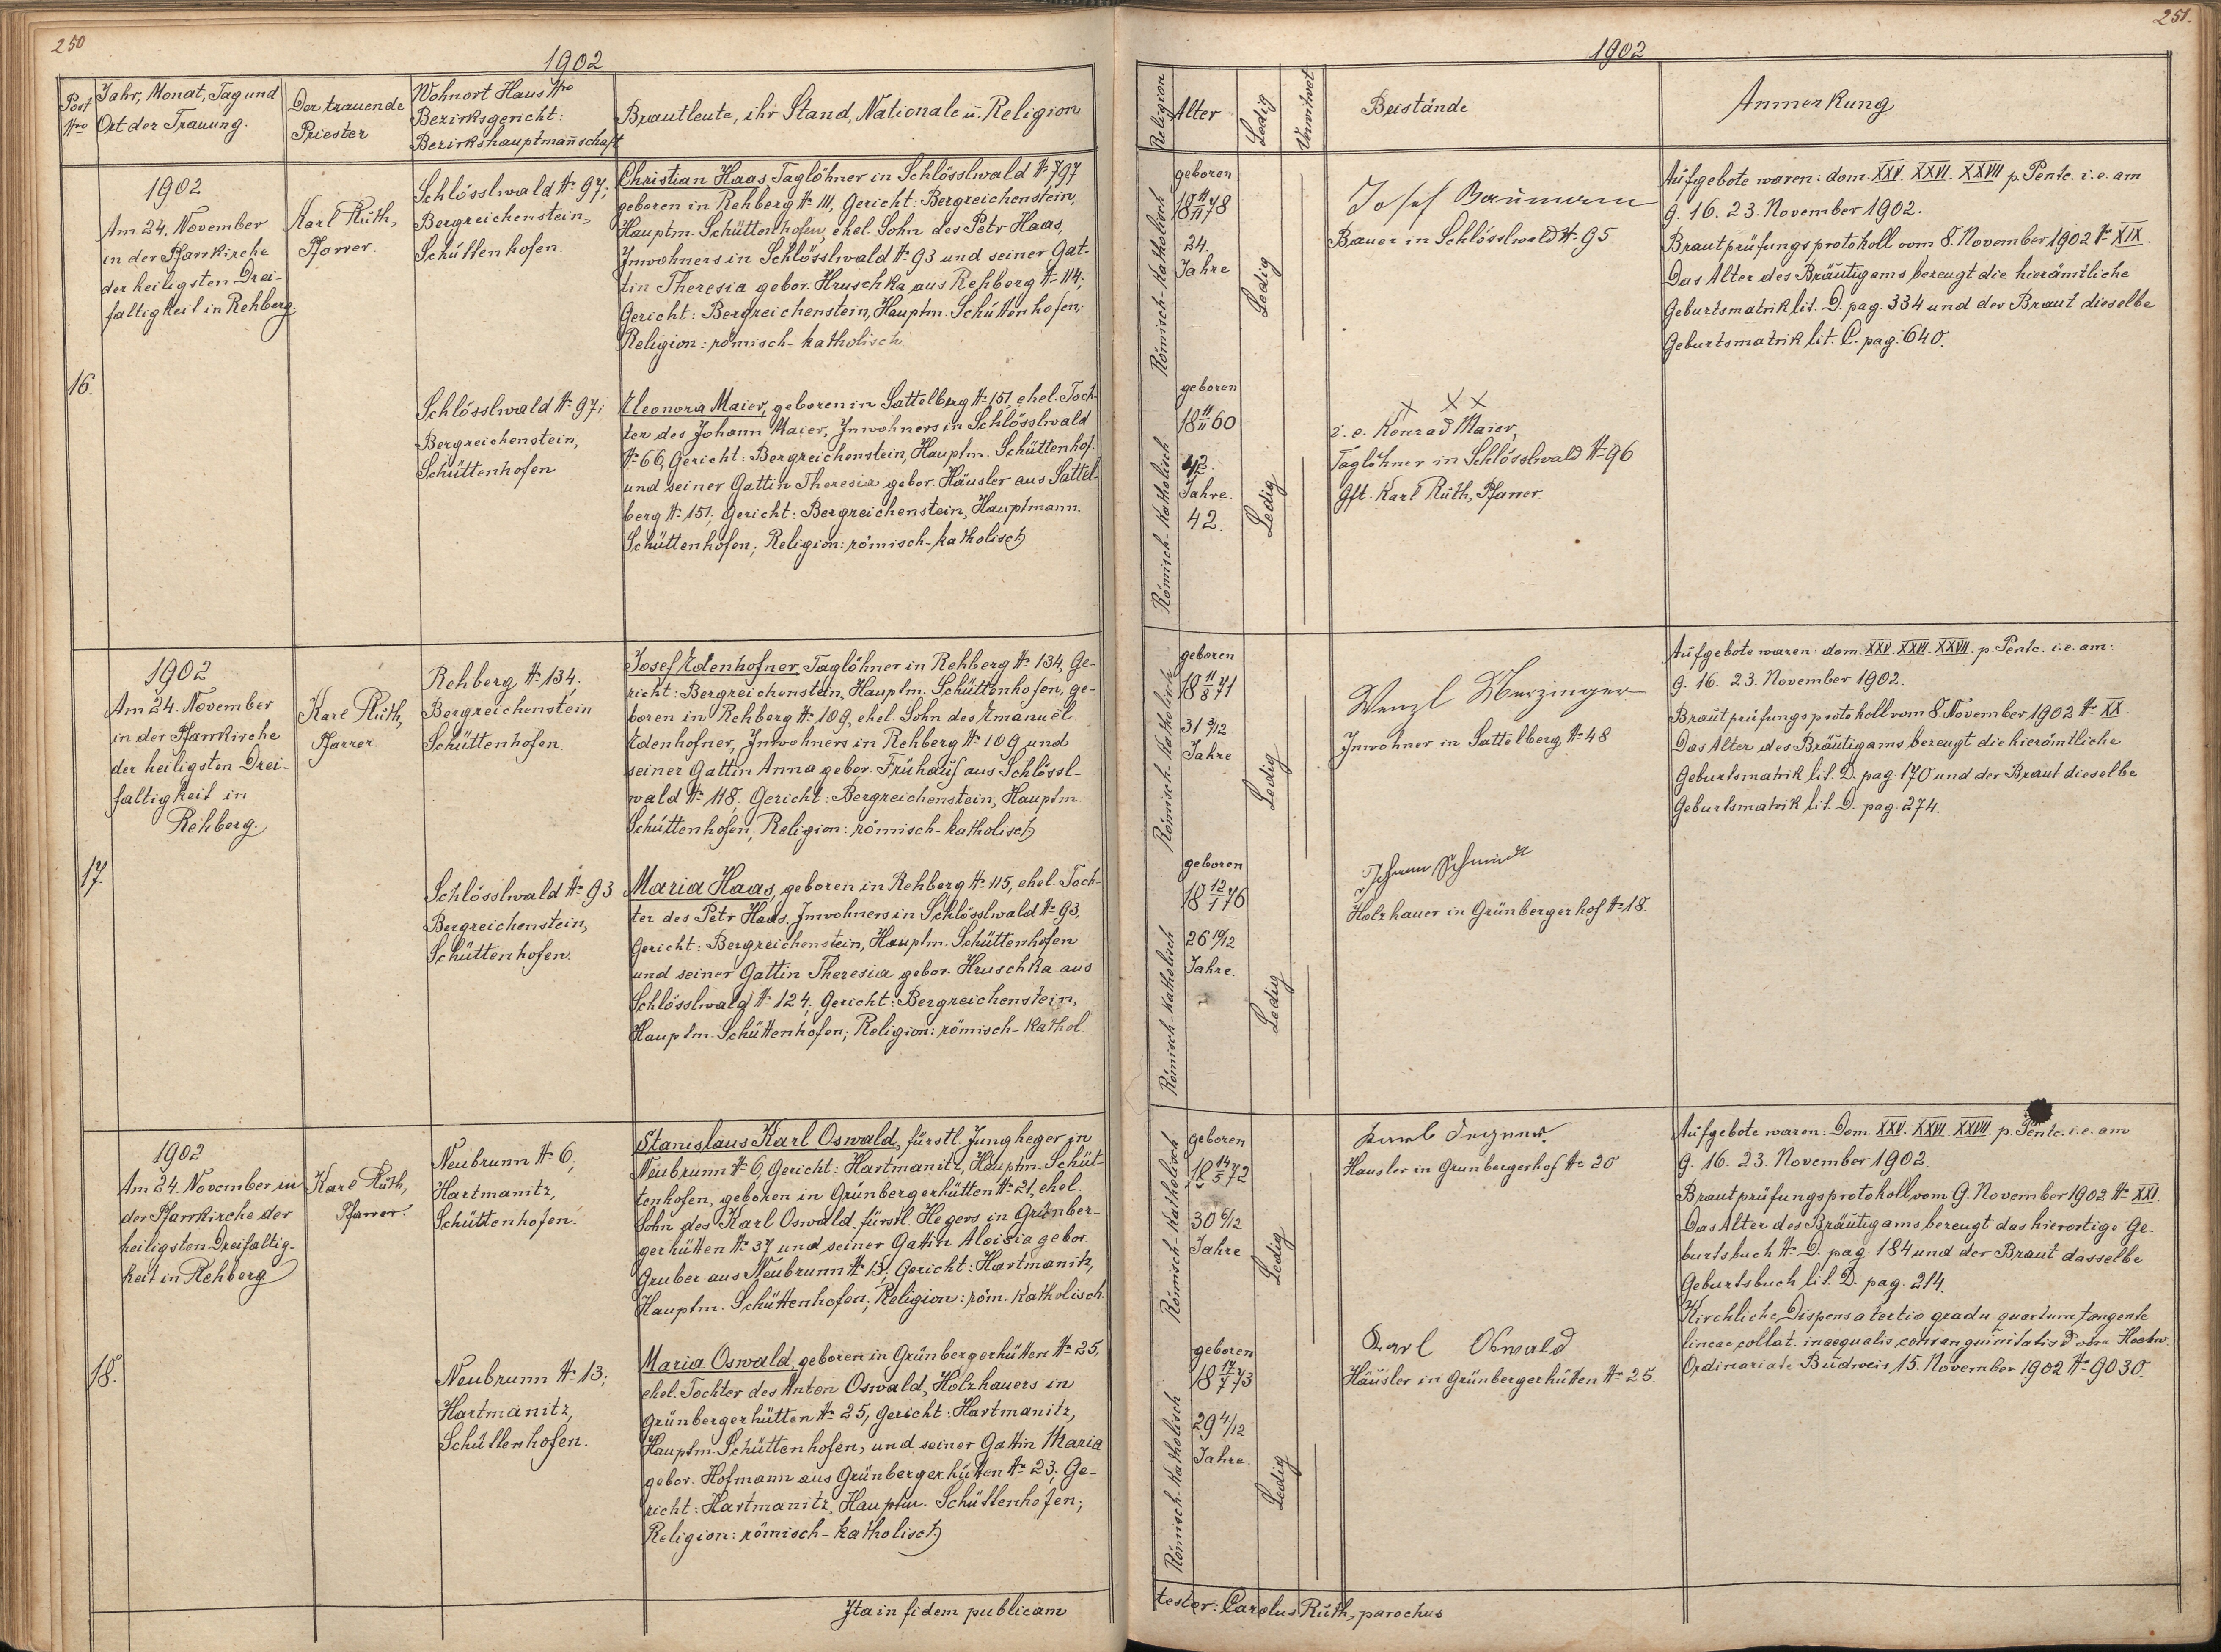 250
1902
Post Nro
Jahr, Monat, Tag und
Ort der Trauung.
Der trauende
Priester
Wohnort Haus Nro
Bezirksgericht:
Bezirkshauptmañschaft
Brautleute, ihr Stand, Nationale u. Religion
16.
1902
Am 24. November
in der Pfarrkirche
der heiligsten Drei-
faltigkeit in Rehberg.
Karl Rüth,
Pfarrer.
Schlösslwald N. 97;
Bergreichenstein,
Schüttenhofen.
Christian Haas, Taglöhner in Schlösslwald N. 97
geboren in Rehberg N. 111, Gericht: Bergreichenstein,
Hauptm. Schüttenhofen, ehel. Sohn des Petr Haas,
Inwohners in Schlösslwald N. 93 und seiner Gat-
tin Theresia gebor. Hruschka aus Rehberg N. 114;
Gericht: Bergreichenstein, Hauptm. Schüttenhofen;
Religion: römisch-katholisch
Schlösslwald N. 97;
Bergreichenstein,
Schüttenhofen
Eleonora Maier, geboren in Sattelberg N. 151, ehel. Toch-
ter des Johann Maier, Inwohners in Schlösslwald
N. 66, Gericht: Bergreichenstein, Hauptm. Schüttenhof.
und seiner Gattin Theresia gebor. Häusler aus Sattel-
berg N. 151; Gericht: Bergreichenstein, Hauptmann.
Schüttenhofen; Religion: römisch-katholisch
17.
1902
Am 24. November
in der Pfarrkirche
der heiligsten Drei-
faltigkeit in
Rehberg.
Karl Rüth,
Pfarrer.
Rehberg N. 134;
Bergreichenstein
Schüttenhofen.
Josef Edenhofner, Taglöhner in Rehberg N. 134, Ge-
richt: Bergreichenstein, Hauptm. Schüttenhofen, ge-
boren in Rehberg N. 109, ehel. Sohn des Emanuel
Edenhofner, Inwohners in Rehberg N. 109 und
seiner Gattin Anna gebor. Frühauf aus Schlössl-
wald N. 118; Gericht: Bergreichenstein, Hauptm.
Schüttenhofen; Religion: römisch-katholisch
Schlösslwald N. 93
Bergreichenstein,
Schüttenhofen.
Maria Haas, geboren in Rehberg N. 115, ehel. Toch-
ter des Petr Haas, Inwohners in Schlösslwald N. 93,
Gericht: Bergreichenstein, Hauptm. Schüttenhofen
und seiner Gattin Theresia gebor. Hruschka aus
Schlösslwald N. 124; Gericht: Bergreichenstein,
Hauptm. Schüttenhofen; Religion: römisch-kathol
18.
1902
Am 24. November in
der Pfarrkirche der
heiligsten Dreifaltig-
keit in Rehberg
Karl Rüth,
Pfarrer.
Neubrunn N. 6;
Hartmanitz,
Schüttenhofen.
Stanislaus Karl Oswald, fürstl. Jungheger in
Neubrunn N. 6, Gericht: Hartmanitz, Hauptm. Schüt-
tenhofen, geboren in Grünbergerhütten N. 21, ehel.
Sohn des Karl Oswald, fürstl. Hegers in Grünber-
gerhütten N. 37 und seiner Gattin Aloisia gebor.
Gruber aus Neubrunn N. 13; Gericht: Hartmanitz,
Hauptm. Schüttenhofen; Religion: röm. katholisch.
Neubrunn N. 13;
Hartmanitz,
Schüttenhofen.
Maria Oswald, geboren in Grünbergerhütten N. 25,
ehel. Tochter des Anton Oswald, Holzhauers in
Grünbergerhütten N. 25, Gericht: Hartmanitz,
Hauptm. Schüttenhofen, und seiner Gattin Maria
gebor. Hofmann aus Grünbergerhütten N. 23; Ge-
richt: Hartmanitz, Hauptm. Schüttenhofen;
Religion: römisch-katholisch
Ita in fidem publicam
251.
1902
Religion
Alter
Ledig
Verwitwet
Beistände
Anmerkung
Römisch-katholisch
geboren
18 11/11 78
24.
Jahre
Ledig
Josef Baumann
Bauer in Schlösslwald N. 95
Aufgebote waren: dom. XXV. XXVI. XXVII p. Pentc. i.e. am
9. 16. 23. November 1902.
Brautprüfungsprotokoll vom 8. November 1902 N. XIX.
Das Alter des Bräutigams bezeugt die hierämtliche
Geburtsmatrik lit. D. pag. 334 und der Braut dieselbe
Geburtsmatrik lit. C. pag. 640.
Römisch-katholisch
geboren
18 11/11 60
42.
Jahre.
42.
Ledig
X X X
i. e. Konrad Maier,
Taglöhner in Schlösslwald N. 96
Gft. Karl Rüth, Pfarrer.
Römisch-katholisch
geboren
18 11/8 71
31 3/12
Jahre
Ledig
Wenzl Merzinger
Inwohner in Sattelberg N. 48
Aufgebote waren: dom. XXV. XXVI. XXVII. p. Pentc. i.e. am:
9. 16. 23. November 1902.
Brautprüfungsprotokoll vom 8. November 1902 N. XX.
Das Alter des Bräutigams bezeugt die hierämtliche
Geburtsmatrik lit. D. pag. 170 und der Braut dieselbe
Geburtsmatrik lit. D. pag. 274.
Römisch-katholisch
geboren
18 12/1 76
26 10/12
Jahre.
Ledig
Johann Schmidt
Holzhauer in Grünbergerhof N. 18.
Römisch-katholisch
geboren
18 14/5 72
30 6/12
Jahre
Ledig
Häusler in Grünbergerhof N. 20
Aufgebote waren: Dom. XXV. XXVI. XXVII. p. Pentc. i.e. am
9. 16. 23. November 1902.
Brautprüfungsprotokoll vom 9. November 1902 N. XXI.
Das Alter des Bräutigams bezeugt das hierortige Ge-
burtsbuch N. D. pag. 184 und der Braut dasselbe
Geburtsbuch lit. D. pag. 214.
Kirchliche Dispens a tertio gradu quartum tangente
lineae collat. inaequalis consanguinitatis vom Hochw.
Ordinariate Budweis 15. November 1902 N. 9030.
Römisch-katholisch
geboren
18 17/7 73
29 4/12
Jahre.
Ledig
Karl Oswald
Häusler in Grünbergerhütten N. 25.
tester: Carolus Rüth, parochus